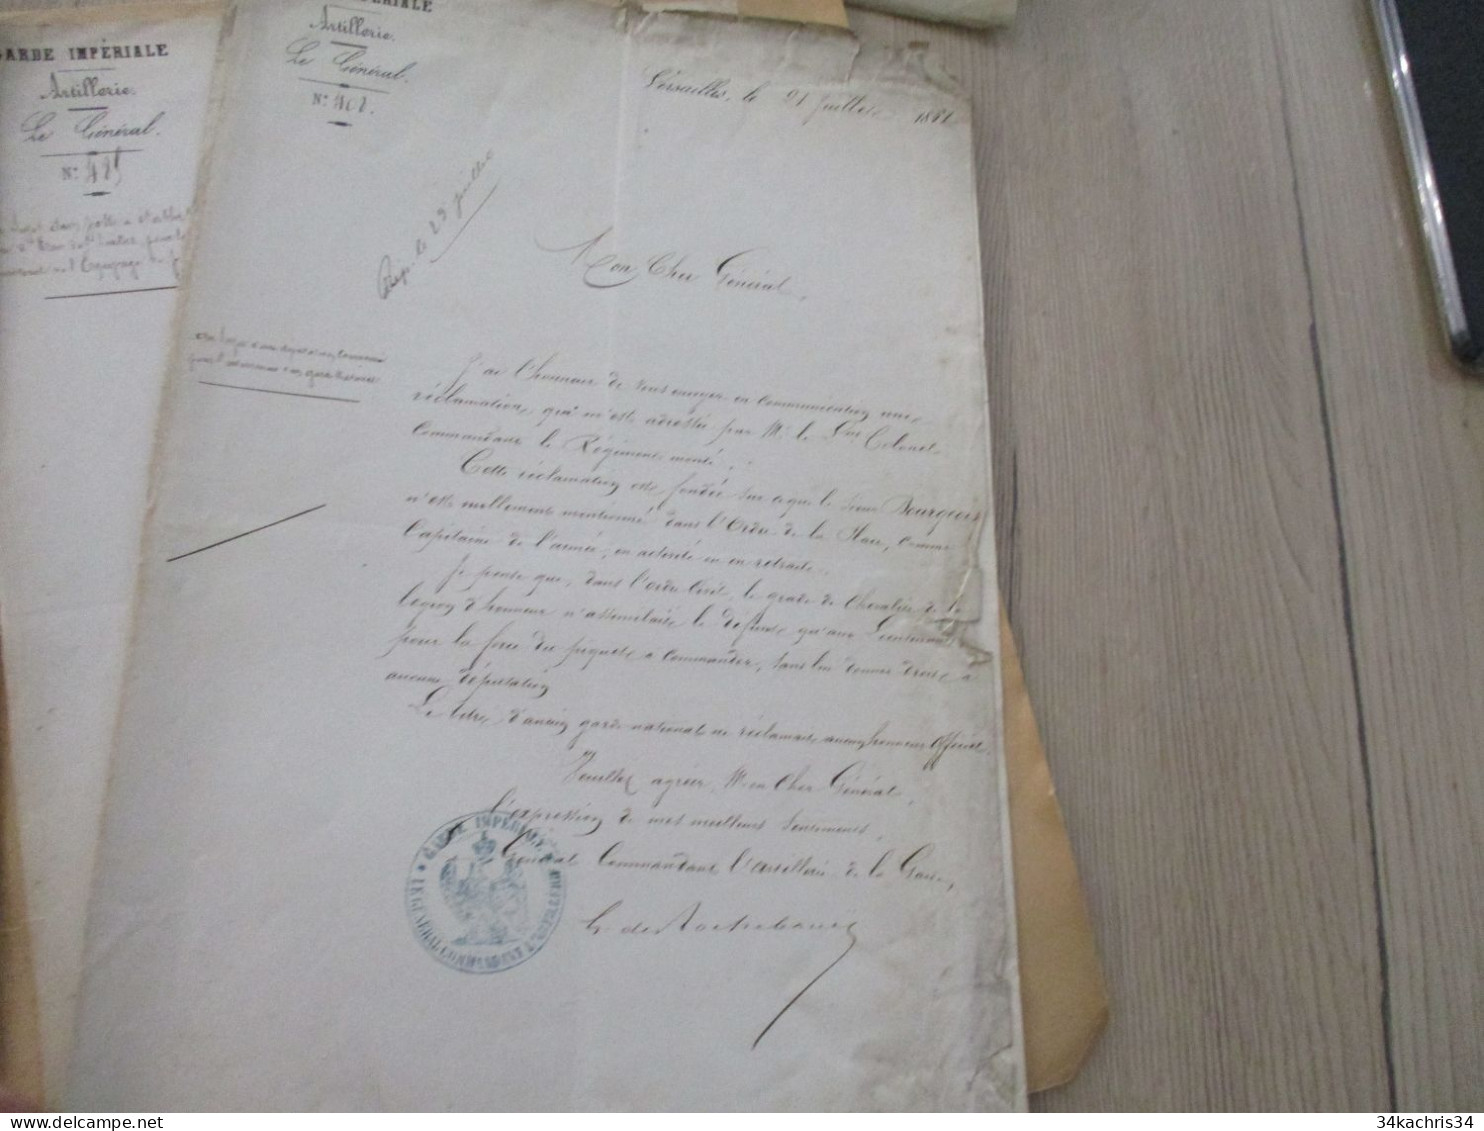 GARDE IMPÉRIALE
Artillerie.
Le Général.
N° 485
Artillerie.
Le Général.
N° 402.
Versailles, le 21 Juillet
Rép. le 23 juillet
Mon Cher Général,
J'ai l'honneur de vous envoyer en communication une
réclamation, qui m'est adressée par Mr le Lieut Colonel
Commandant le Régiment monté.
Cette réclamation est fondée sur ce que le sieur Bourgeois
n'est nullement mentionné dans l'Ordre de la Place, comme
Capitaine de l'armée, en activité ou en retraite.
Je pense que, dans l'ordre Civil, le grade de Chevalier de la
Légion d'honneur n'assimilait le défunt qu'aux Lieutenants
pour la force du piquet à commander, sans lui donner droit à
aucune députation
Le titre d'ancien garde national ne réclamait aucun honneur Officiel.
Veuillez agréer, Mon Cher Général,
l'expression de mes meilleurs sentiments.
Général Commandant l'artillerie de la Garde,
de Rochebouët
GARDE IMPÉRIALE
LE GÉNÉRAL COMMANDANT L'ARTILLERIE
34kachris34
delcampe.net
34kachris34